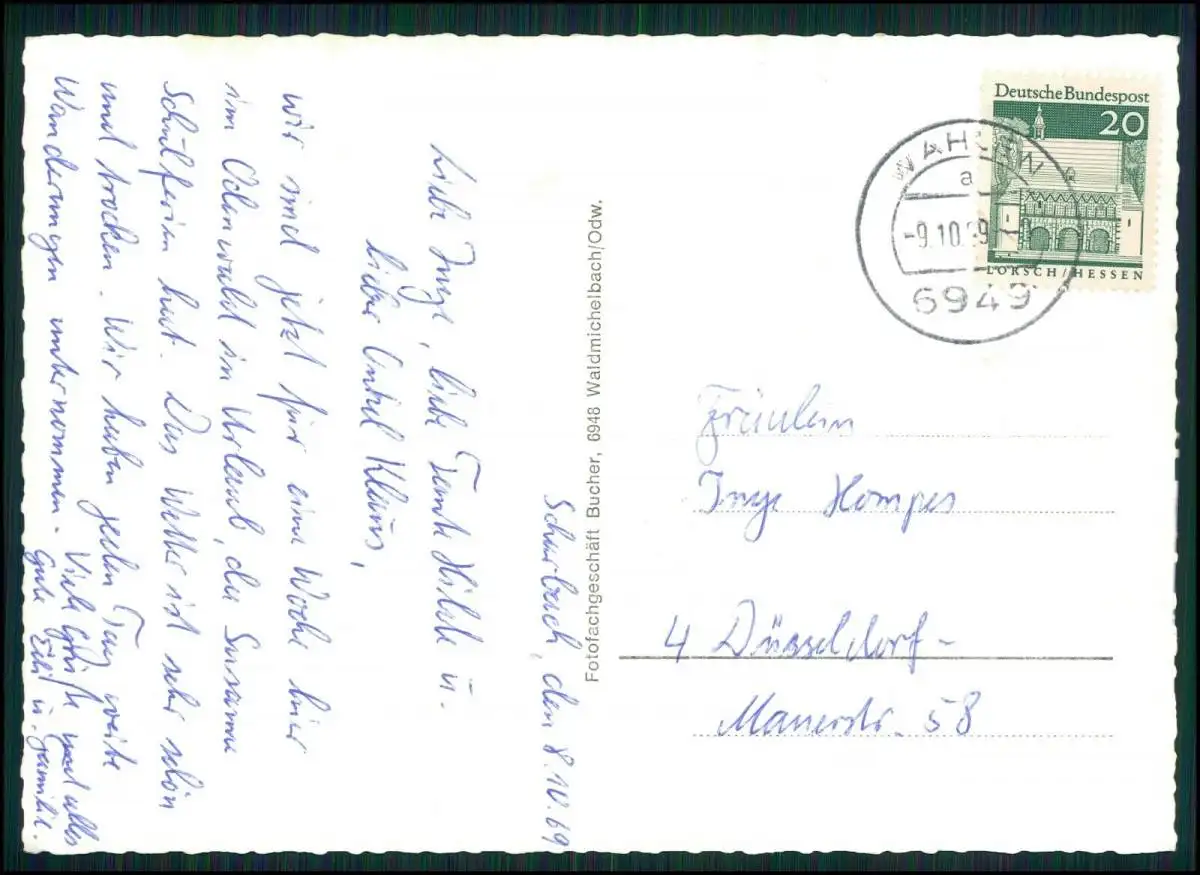 Scharbach, den 8.10.69
Liebe Inge, liebe Tante Hilde u.
lieber Onkel Klaus,
wir sind jetzt für eine Woche hier
im Odenwald in Urlaub, da Susanne
Schulferien hat. Das Wetter ist sehr schön
und trocken. Wir haben jeden Tag weite
Wanderungen unternommen.
Viele Grüße und alles
Gute u. Familie.
Fotofachgeschäft Bucher, 6948 Waldmichelbach/Odw.
Deutsche Bundespost
20
LORSCH/HESSEN
a
-9.10.69
6949
Fräulein
Inge Hompes
4 Düsseldorf-
Mauerstr. 58